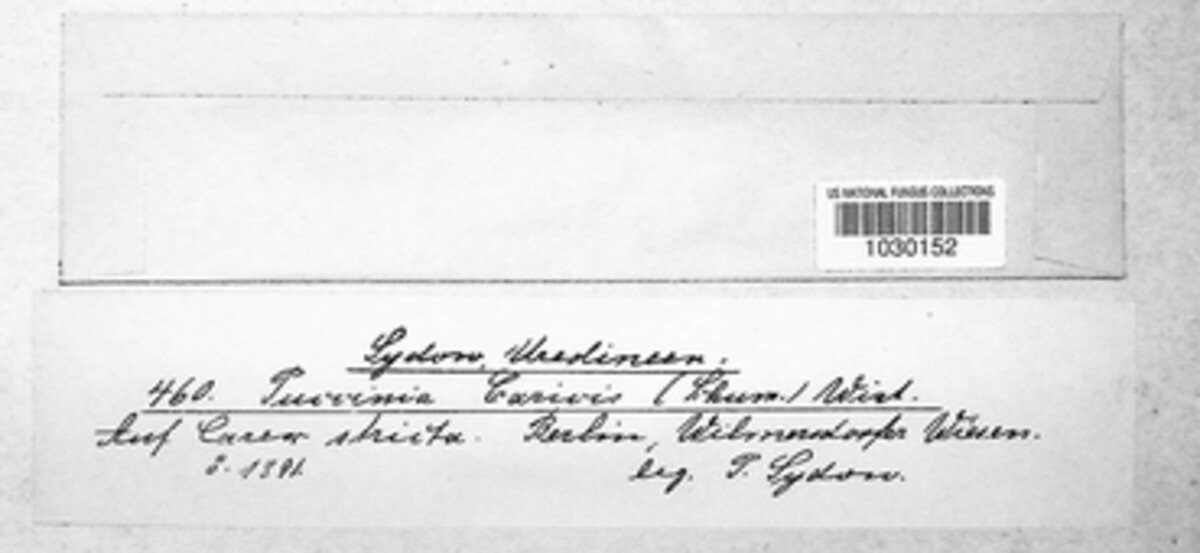 US NATIONAL FUNGUS COLLECTIONS
1030152
Sydow, Uredineen.
460. Puccinia Caricis (Schum.) Wint.
Auf Carex stricta. Berlin, Wilmersdorfer Wiesen.
leg. P. Sydow.